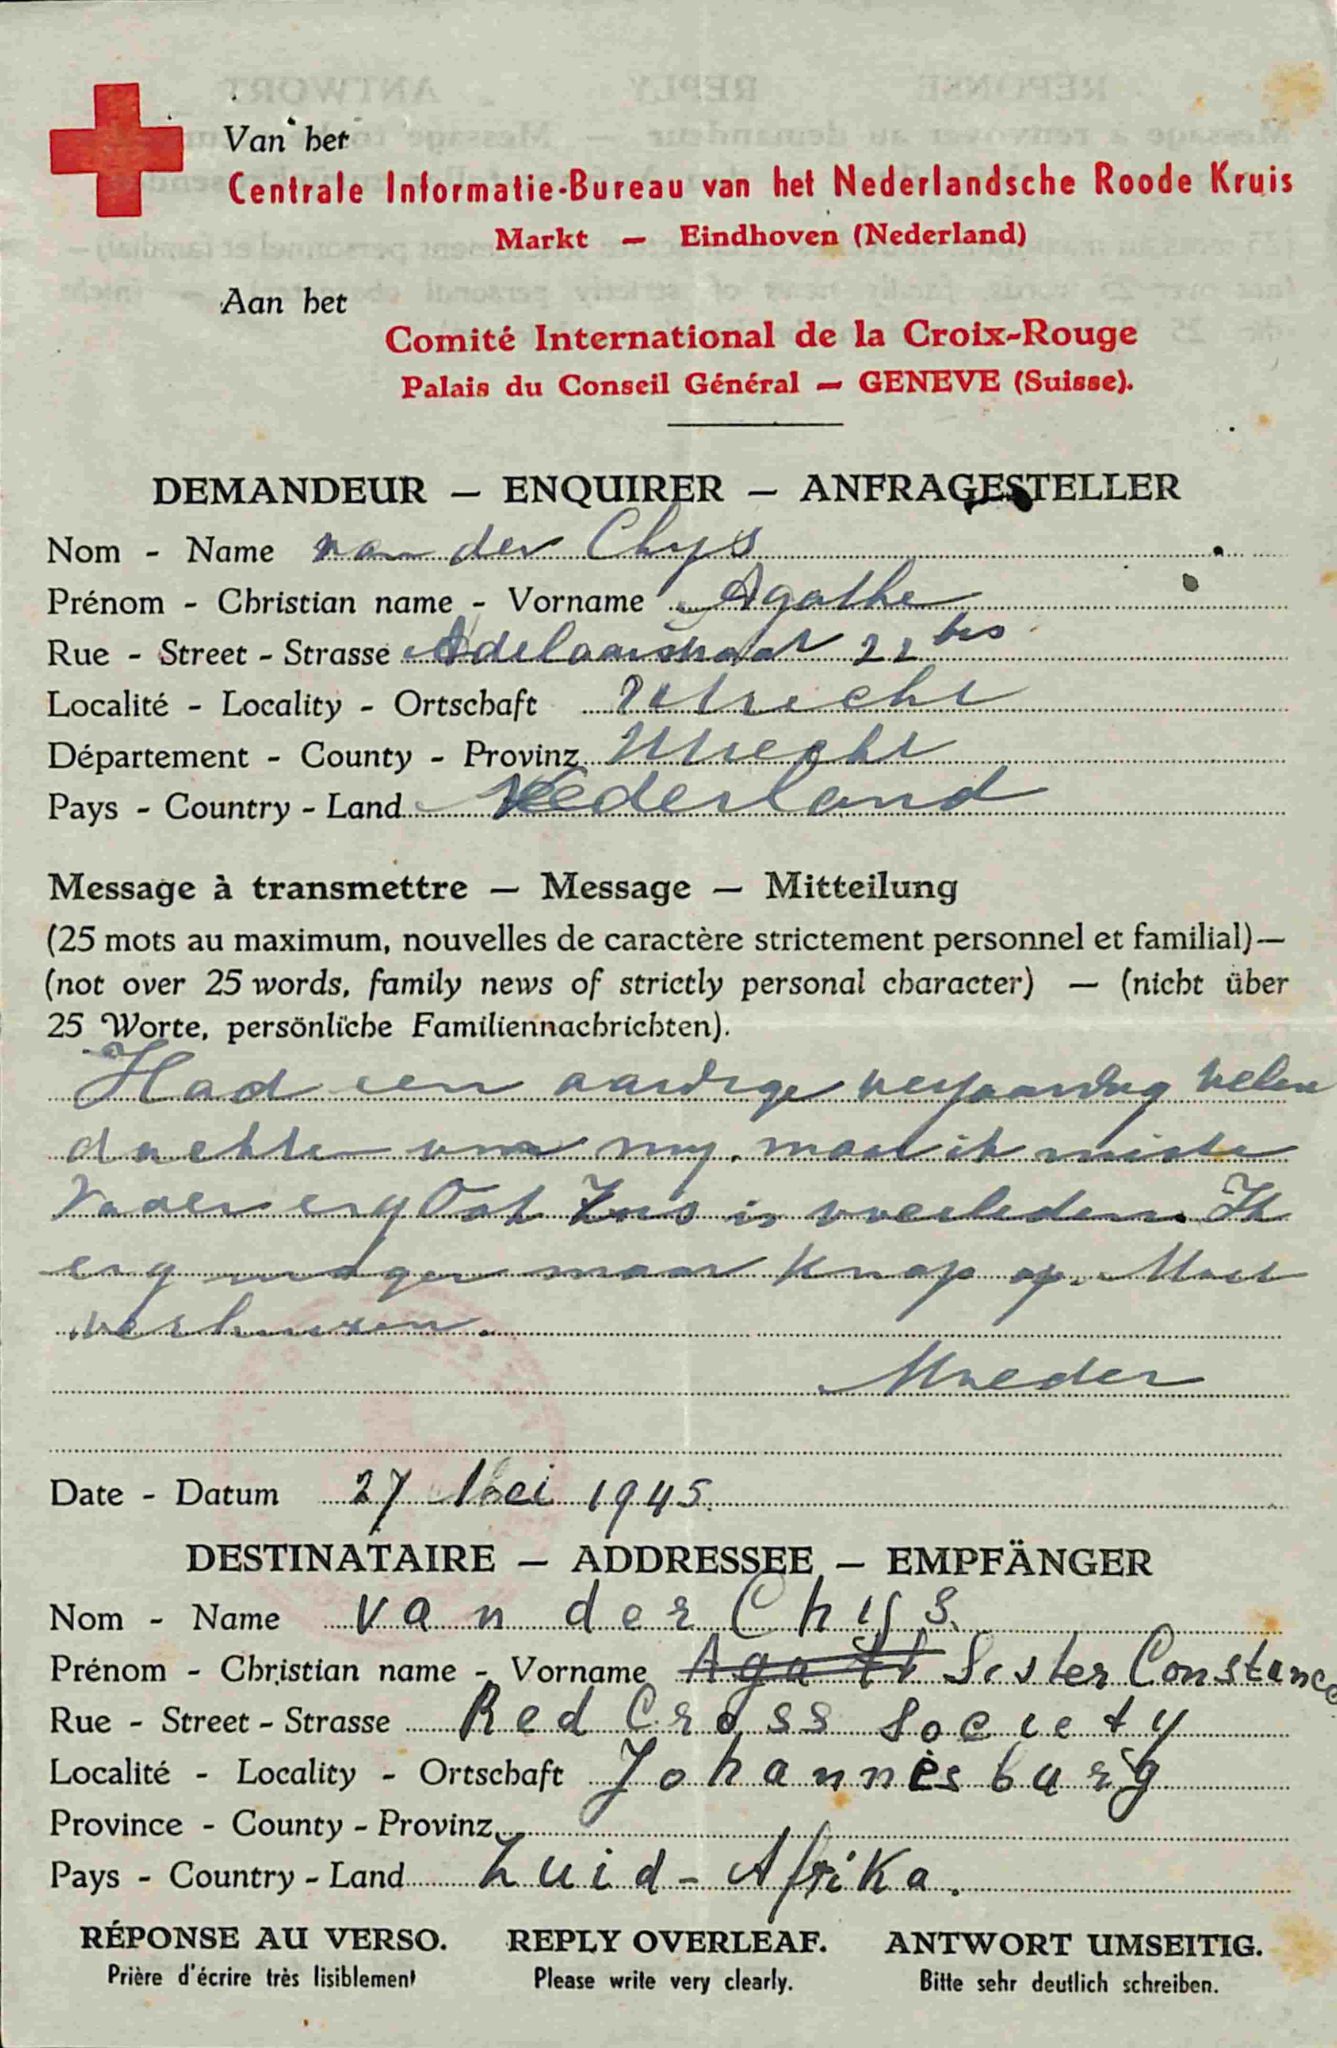 Van het
Centrale Informatie-Bureau van het Nederlandsche Roode Kruis
Markt — Eindhoven (Nederland)
Aan het
Comité International de la Croix-Rouge
Palais du Conseil Général — GENEVE (Suisse).
DEMANDEUR — ENQUIRER — ANFRAGESTELLER
Nom - Name van der Chys
Prénom - Christian name - Vorname Agathe
Rue - Street - Strasse Adelaarstraat 22 bis
Localité - Locality - Ortschaft Utrecht
Département - County - Provinz Utrecht
Pays - Country - Land Nederland
Message à transmettre — Message — Mitteilung
(25 mots au maximum, nouvelles de caractère strictement personnel et familial) —
(not over 25 words, family news of strictly personal character) — (nicht über
25 Worte, persönliche Familiennachrichten).
Had een aardige verjaardag velen
dachten om my. maar ik miste
Vader erg Ook Zus is overleden. Ik
erg mager maar knap op. Moet
verhuizen.
Moeder
Date - Datum 27 Mei 1945.
DESTINATAIRE — ADDRESSEE — EMPFÄNGER
Nom - Name van der Chijs.
Prénom - Christian name - Vorname Sister Constance
Rue - Street - Strasse Red Cross Society
Localité - Locality - Ortschaft Johannesburg
Province - County - Provinz
Pays - Country - Land Zuid-Afrika.
RÉPONSE AU VERSO. REPLY OVERLEAF. ANTWORT UMSEITIG.
Prière d'écrire très lisiblement Please write very clearly. Bitte sehr deutlich schreiben.